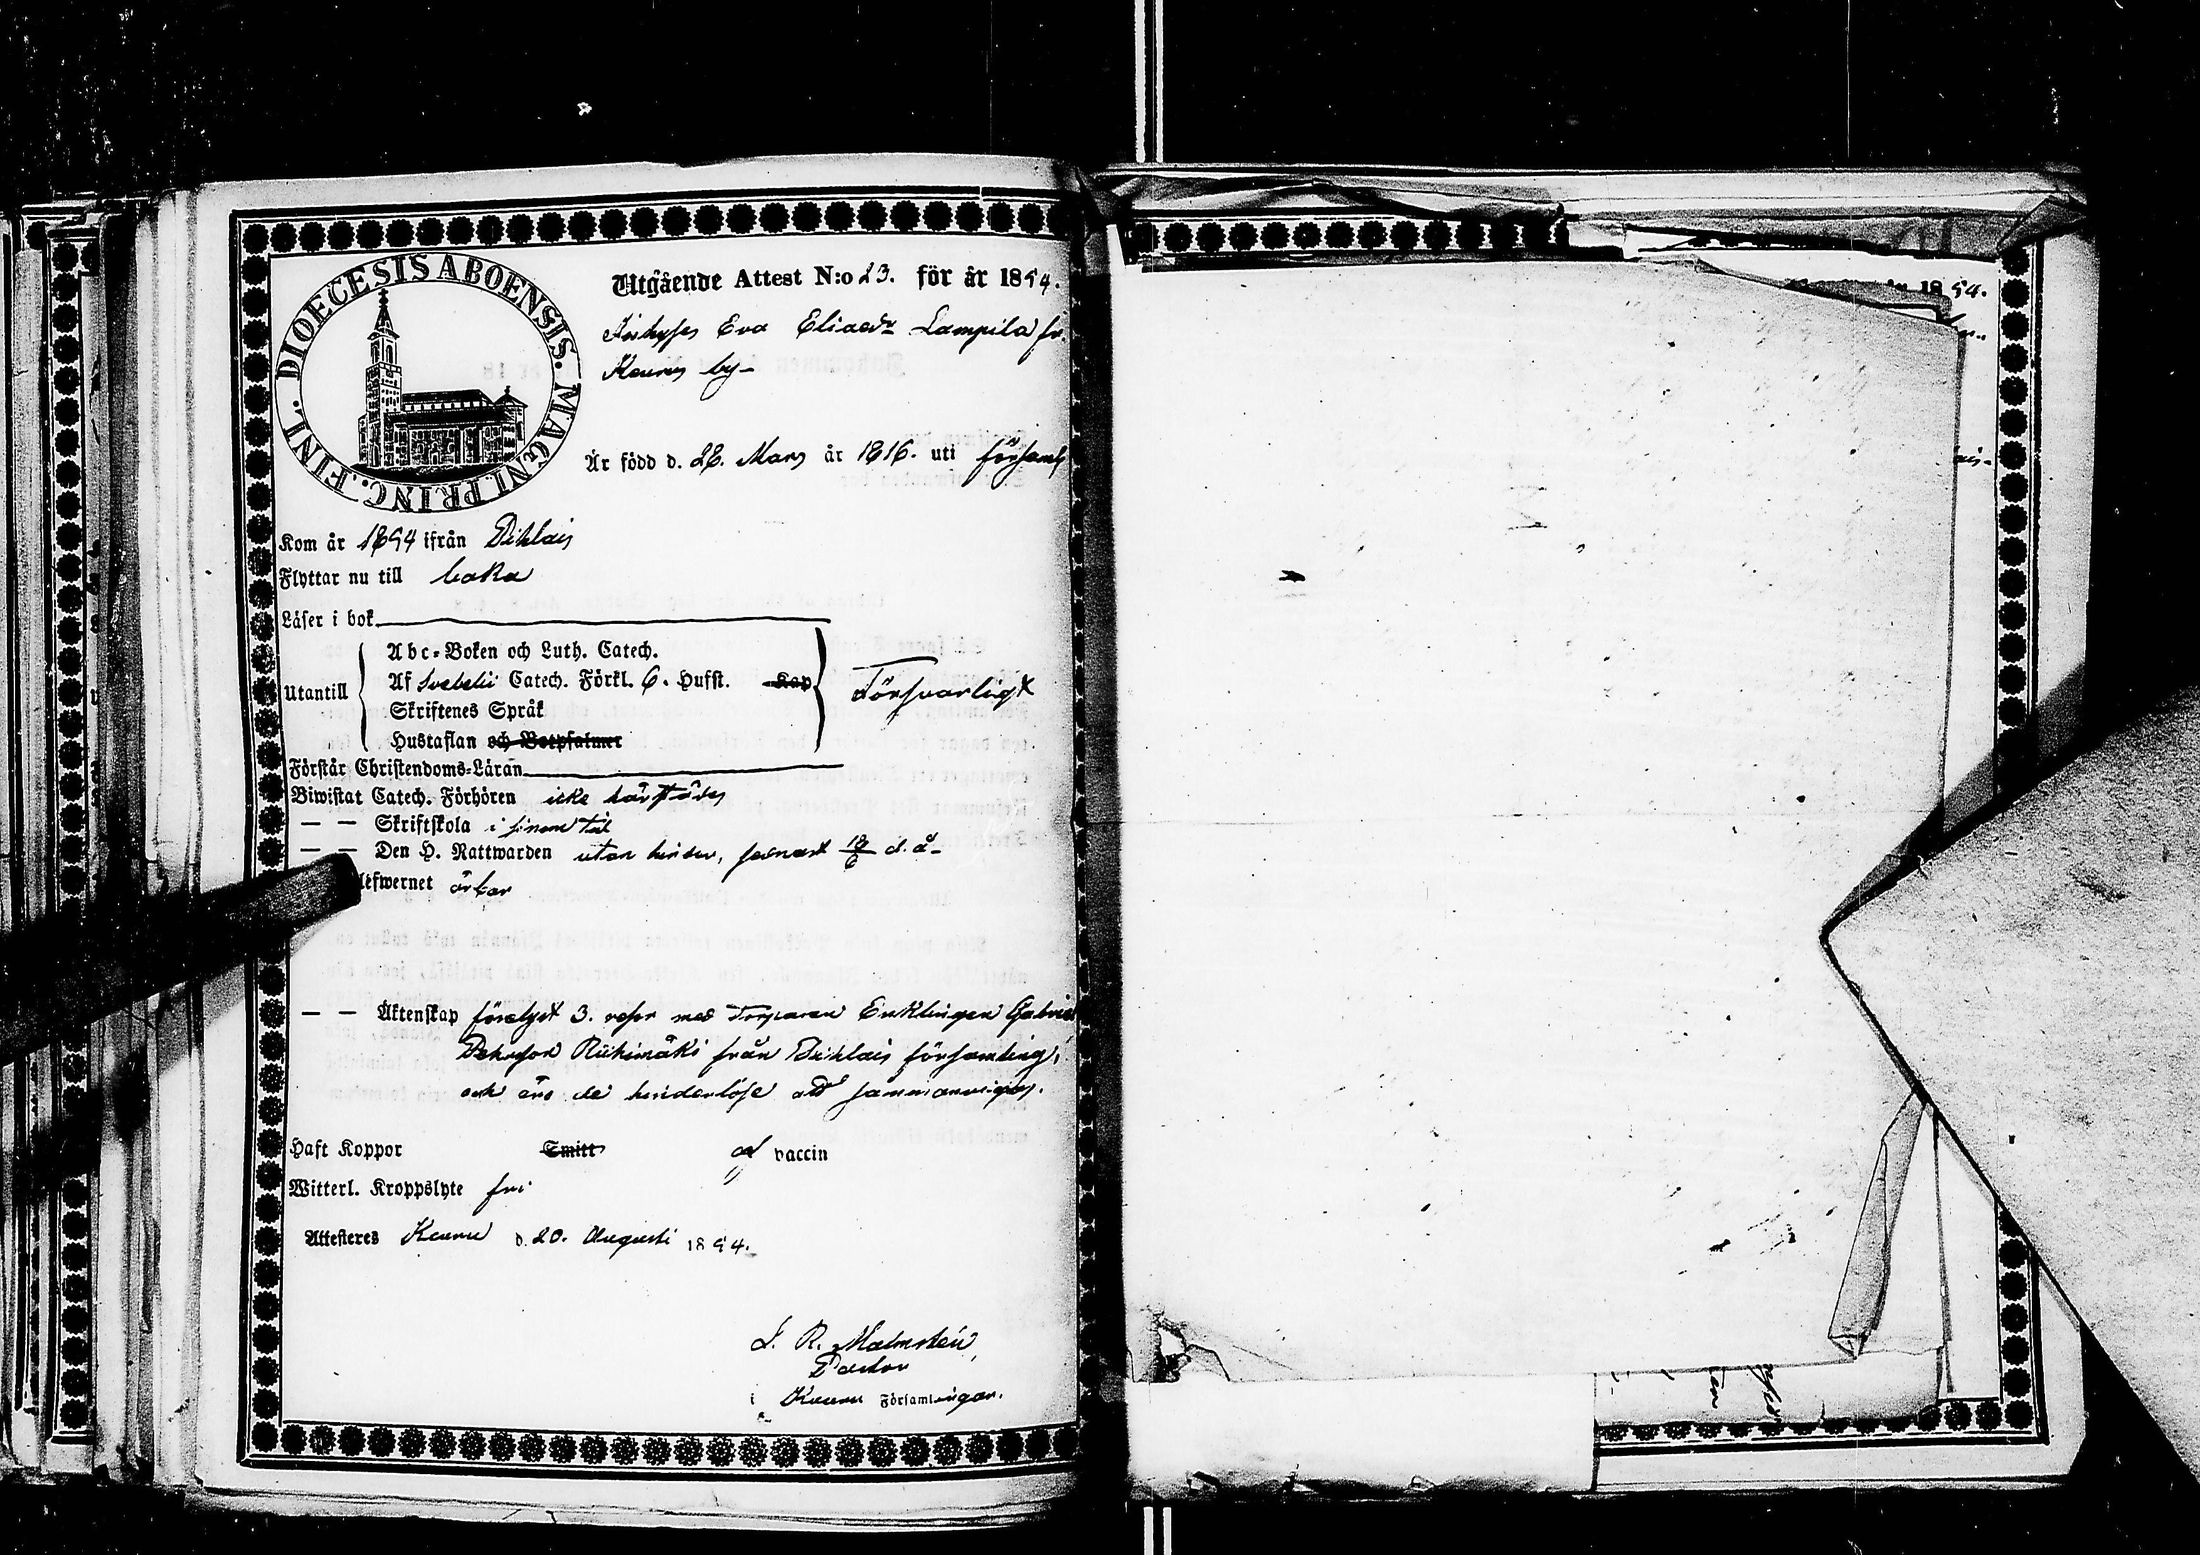 DIOECESIS ABOENSIS. MAGNI. PRINC. FINL.
Utgående Attest N:o 23. för år 1854.
Eva Eliaedr Lampila fr.
Keuru by-
Är född d. 28. Mars år 1816. uti församl
Kom år 1854 ifrån Pihlais
Flyttar nu till
Läser i bok
Abc-Boken och Luth. Catech.
Utantill
Af Svebelii Catech. Förkl. 6. Hufst. Kap
Försvarligt
Skriftenes Språk
Hustaflan och Botpsalmer
Förstår Christendoms-Läran
Biwistat Catech. Förhören icke härstädes
— — Skriftskola i sinom tid
— — Den H. Nattwarden utan hinder, senast 18/6 d. å-
lefwernet ärbar
— — Äktenskap förelyst 3. resor med Torparen Enklingen Gabriel
Riihimäki från Pihlais församling,
och äro de hinderlöse att sammanvigas.
Haft Koppor Smitt af vaccin
Witterl. Kroppslyte fri
Attesteres Keuru d. 20. Augusti 1854.
J. R. Malmstén,
Pastor
i Keuru Församlingar.
18 54.